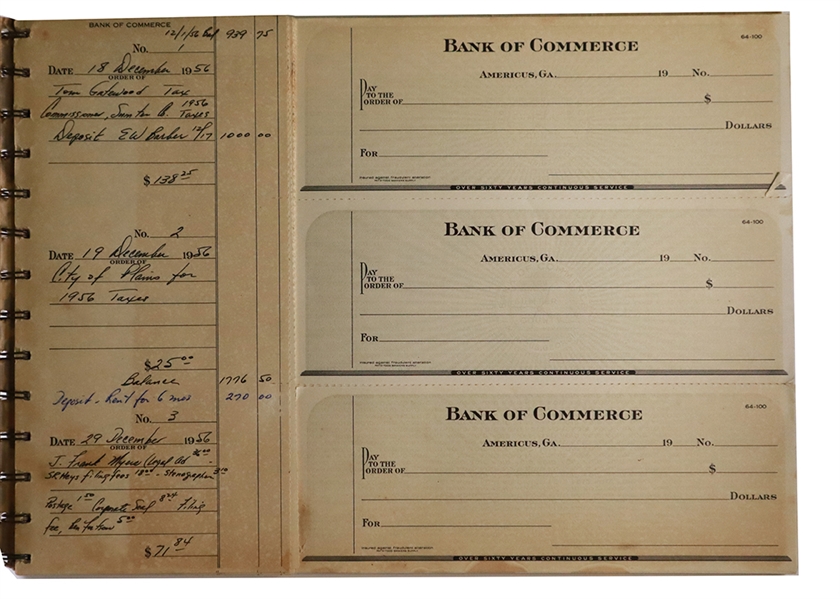 BANK OF COMMERCE
12/1/56 Bal 939 75
No. 1
DATE 18 December 1956
ORDER OF
Tom Gatewood Tax
Commissioner, Sumter Co. 1956 Taxes
Deposit EW Barber 12/17 1000 00
$ 138 25
No. 2
DATE 19 December 1956
ORDER OF
City of Plains for
1956 Taxes
$ 25 00
Balance 1776 50
Deposit - Rent for 6 mos 270 00
No. 3
DATE 29 December 1956
ORDER OF
J. Frank Myers (Legal Ad 36 00 -
filing fees 18 00 - Stenographer 3 00
Postage 1 50 Corporate Seal 8 24 Filing
fee, 5 00
$ 71 84
64-100
BANK OF COMMERCE
AMERICUS, GA. 19 No.
PAY TO THE ORDER OF $
DOLLARS
FOR
OVER SIXTY YEARS CONTINUOUS SERVICE
64-100
BANK OF COMMERCE
AMERICUS, GA. 19 No.
PAY TO THE ORDER OF $
DOLLARS
FOR
OVER SIXTY YEARS CONTINUOUS SERVICE
64-100
BANK OF COMMERCE
AMERICUS, GA. 19 No.
PAY TO THE ORDER OF $
DOLLARS
FOR
OVER SIXTY YEARS CONTINUOUS SERVICE